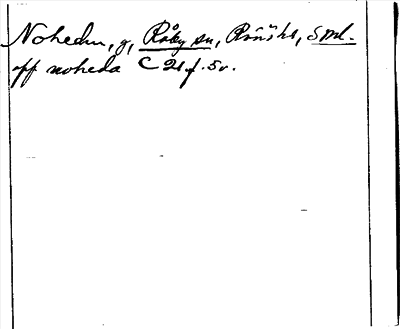 Nohedu, g, Råby sn, Rönö hd, Sml.
off noheda C 21 f. 5v.